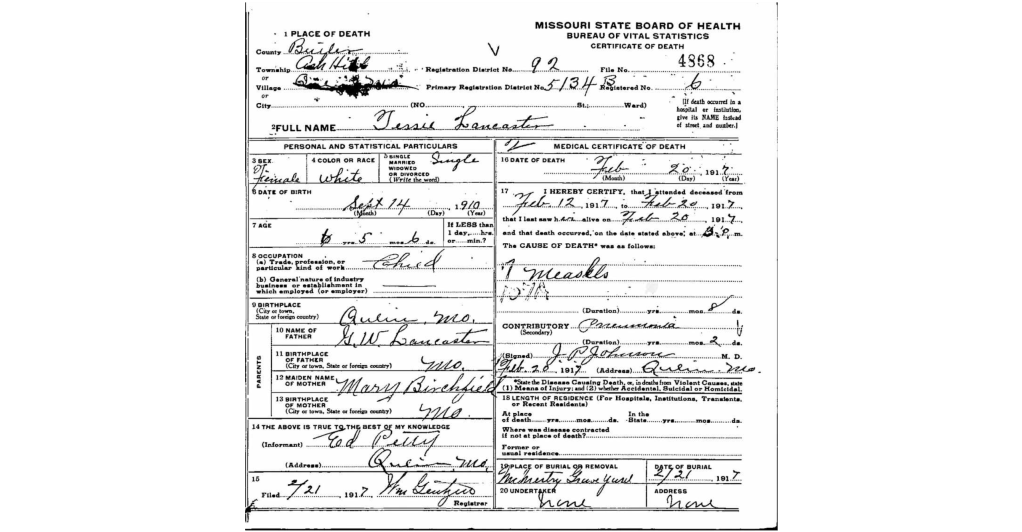 MISSOURI STATE BOARD OF HEALTH
BUREAU OF VITAL STATISTICS
CERTIFICATE OF DEATH
1 PLACE OF DEATH
County Butler
Township Ash Hill Registration District No. 92 File No. 4868
or
Village Primary Registration District No. 5134 B Registered No. 6
or
City (NO. St.; Ward)
[If death occurred in a
hospital or institution,
give its NAME instead
of street and number.]
2 FULL NAME Tessie Lancaster
PERSONAL AND STATISTICAL PARTICULARS
3 SEX Female
4 COLOR OR RACE White
5 SINGLE
MARRIED
WIDOWED
OR DIVORCED
(Write the word) Single
6 DATE OF BIRTH
Sept 14, 1910
(Month) (Day) (Year)
7 AGE
6 yrs. 5 mos. 6 ds.
If LESS than
1 day, hrs.
or min.?
8 OCCUPATION
(a) Trade, profession, or
particular kind of work Chied
(b) General nature of industry
business or establishment in
which employed (or employer)
9 BIRTHPLACE
(City or town,
State or foreign country) Qulin, Mo.
PARENTS
10 NAME OF
FATHER G.W. Lancaster
11 BIRTHPLACE
OF FATHER
(City or town, State or foreign country) Mo.
12 MAIDEN NAME
OF MOTHER Mary Birchfield
13 BIRTHPLACE
OF MOTHER
(City or town, State or foreign country) Mo.
14 THE ABOVE IS TRUE TO THE BEST OF MY KNOWLEDGE
(Informant) Ed Petty
(Address) Qulin, Mo.
15
Filed 2/21 1917 Wm
Registrar
MEDICAL CERTIFICATE OF DEATH
16 DATE OF DEATH
Feb 20, 1917
(Month) (Day) (Year)
17 I HEREBY CERTIFY, that I attended deceased from
Feb 12, 1917, to Feb 20, 1917
that I last saw her alive on Feb 20, 1917
and that death occurred, on the date stated above, at P m.
The CAUSE OF DEATH* was as follows:
Measels
(Duration) yrs. mos. 8 ds.
CONTRIBUTORY Pneumonia
(Secondary)
(Duration) yrs. mos. 2 ds.
(Signed) J. P. Johnson M. D.
Feb. 20, 1917 (Address) Qulin, Mo.
*State the Disease Causing Death, or, in death from Violent Causes, state
(1) Means of Injury; and (2) whether Accidental, Suicidal or Homicidal.
18 LENGTH OF RESIDENCE (For Hospitals, Institutions, Transients,
or Recent Residents)
At place
of death yrs. mos. ds.
In the
State yrs. mos. ds.
Where was disease contracted
if not at place of death?
Former or
usual residence
19 PLACE OF BURIAL OR REMOVAL
Grave yard
DATE OF BURIAL
2/21 1917
20 UNDERTAKER
none
ADDRESS
none